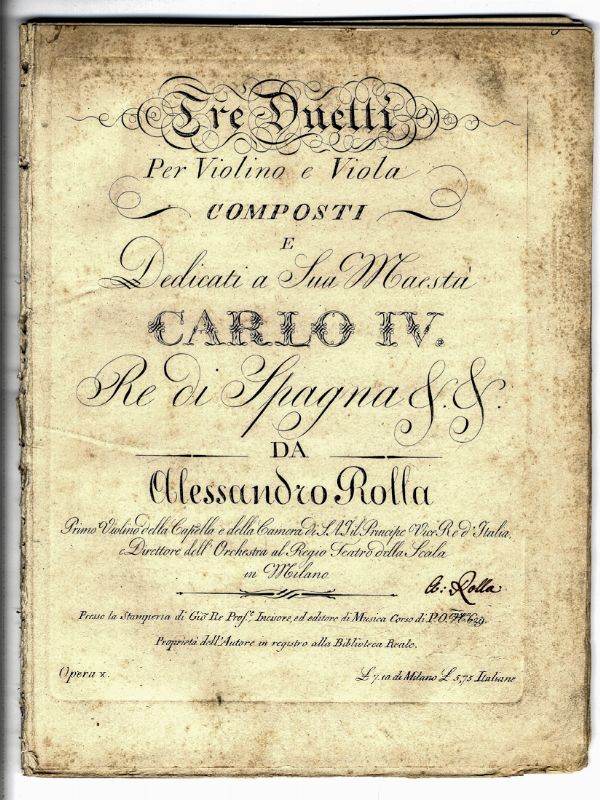 Trè Duetti
Per Violino e Viola
COMPOSTI
E
Dedicati a Sua Maestà
CARLO IV.
Re di Spagna &. &.
DA
Alessandro Rolla
Primo Violino della Capella e della Camera di S.A.I. il Principe Vice Re d'Italia,
e Direttore dell'Orchestra al Regio Teatro della Scala
in Milano
A: Rolla
Presso la Stamperia di Gio. Re Prof.e Incisore, ed editore di Musica Corso di P.O. N.629.
Proprietà dell'Autore in registro alla Biblioteca Reale.
Opera x.
£ 7.10 di Milano £ 5,75 Italiane